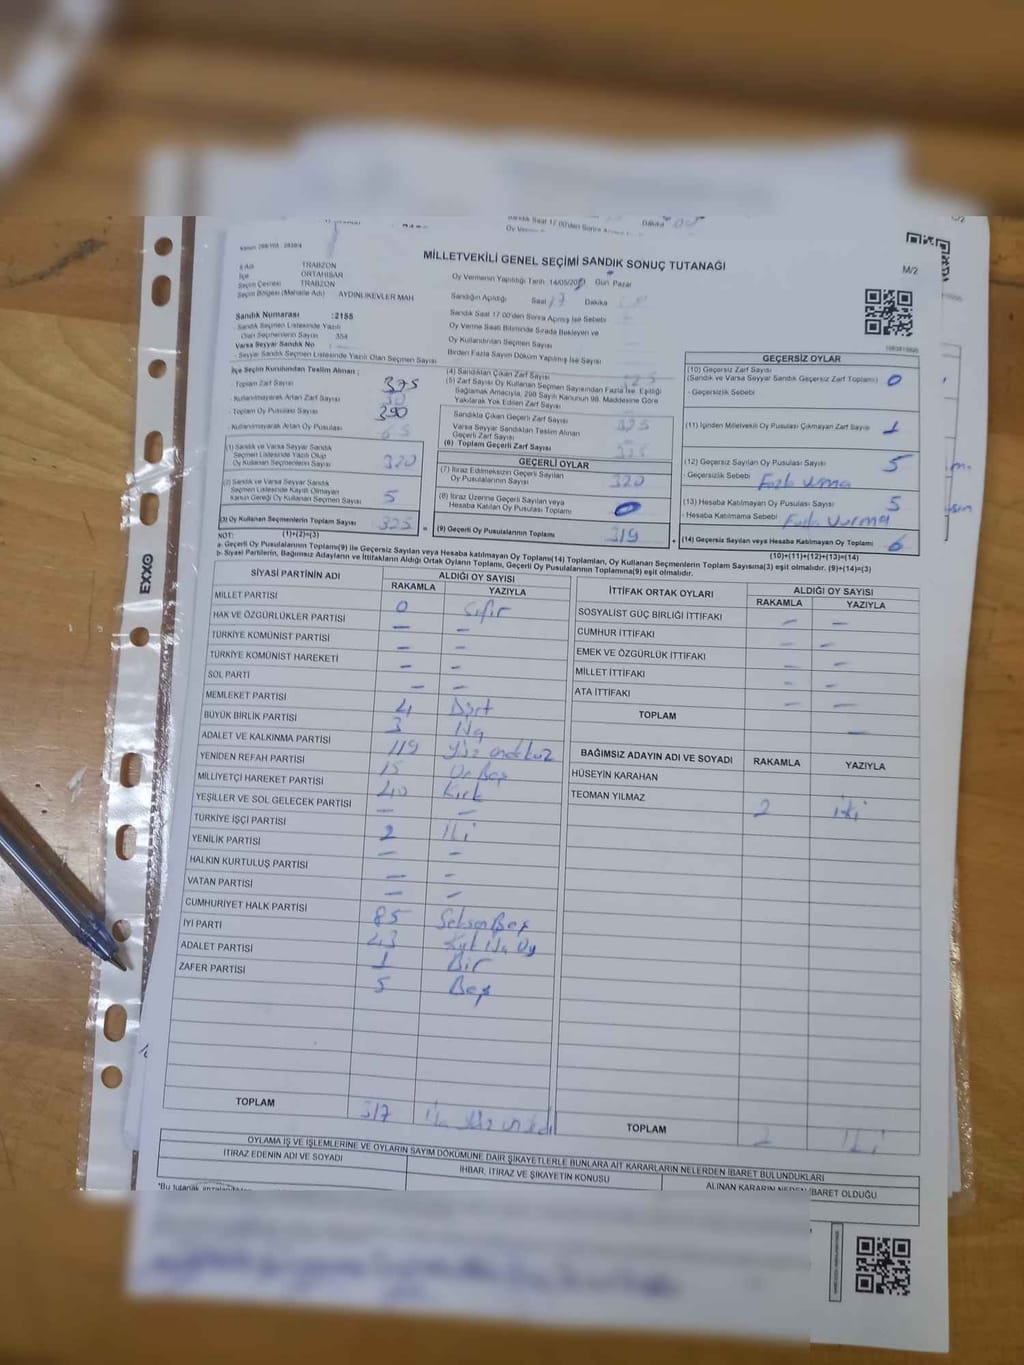 Kanun: 298/YSK - 2839/4
MİLLETVEKİLİ GENEL SEÇİMİ SANDIK SONUÇ TUTANAĞI
M/2
İl Adı TRABZON
İlçe ORTAHİSAR
Seçim Çevresi TRABZON
Seçim Bölgesi (Mahalle Adı) AYDINLIKEVLER MAH
Sandık Numarası :2155
- Sandık Seçmen Listesinde Yazılı
Olan Seçmenlerin Sayısı 354
Varsa Seyyar Sandık No
- Seyyar Sandık Seçmen Listesinde Yazılı Olan Seçmen Sayısı
Oy Vermenin Yapıldığı Tarih 14/05/20 Gün Pazar
Sandığın Açıldığı Saat 17 Dakika
Sandık Saat 17:00'den Sonra Açmış İse Sebebi
Oy Verme Saati Bitiminde Sırada Bekleyen ve
Oy Kullandırılan Seçmen Sayısı
Birden Fazla Sayım Döküm Yapılmış İse Sayısı
İlçe Seçim Kurulundan Teslim Alınan :
- Toplam Zarf Sayısı 375
- Kullanılmayarak Artan Zarf Sayısı
- Toplam Oy Pusulası Sayısı 390
- Kullanılmayarak Artan Oy Pusulası
(1) Sandık ve Varsa Seyyar Sandık
Seçmen Listesinde Yazılı Olup
Oy Kullanan Seçmenlerin Sayısı 320
(2) Sandık ve Varsa Seyyar Sandık
Seçmen Listesinde Kayıtlı Olmayan
Kanun Gereği Oy Kullanan Seçmen Sayısı 5
(3) Oy Kullanan Seçmenlerin Toplam Sayısı 325 =
(1)+(2)=(3)
(4) Sandıktan Çıkan Zarf Sayısı 325
(5) Zarf Sayısı Oy Kullanan Seçmen Sayısından Fazla İse, Eşitliği
Sağlamak Amacıyla, 298 Sayılı Kanunun 98. Maddesine Göre
Yakılarak Yok Edilen Zarf Sayısı
Sandıkta Çıkan Geçerli Zarf Sayısı 325
Varsa Seyyar Sandıktan Teslim Alınan
Geçerli Zarf Sayısı
(6) Toplam Geçerli Zarf Sayısı 325
GEÇERLİ OYLAR
(7) İtiraz Edilmeksizin Geçerli Sayılan
Oy Pusulalarının Sayısı 320
(8) İtiraz Üzerine Geçerli Sayılan veya
Hesaba Katılan Oy Pusulası Toplamı 0
(9) Geçerli Oy Pusulalarının Toplamı 319 +
GEÇERSİZ OYLAR
(10) Geçersiz Zarf Sayısı
(Sandık ve Varsa Seyyar Sandık Geçersiz Zarf Toplamı) 0
- Geçersizlik Sebebi
(11) İçinden Milletvekili Oy Pusulası Çıkmayan Zarf Sayısı 1
(12) Geçersiz Sayılan Oy Pusulası Sayısı 5
- Geçersizlik Sebebi
(13) Hesaba Katılmayan Oy Pusulası Sayısı 5
- Hesaba Katılmama Sebebi Fazla vurma
(14) Geçersiz Sayılan veya Hesaba Katılmayan Oy Toplamı 6
(10)+(11)+(12)+(13)=(14)
NOT:
a- Geçerli Oy Pusulalarının Toplamı(9) ile Geçersiz Sayılan veya Hesaba katılmayan Oy Toplamı(14) Toplamları, Oy Kullanan Seçmenlerin Toplam Sayısına(3) eşit olmalıdır. (9)+(14)=(3)
b- Siyasi Partilerin, Bağımsız Adayların ve İttifakların Aldığı Ortak Oyların Toplamı, Geçerli Oy Pusulalarının Toplamına(9) eşit olmalıdır.
SİYASİ PARTİNİN ADI ALDIĞI OY SAYISI
RAKAMLA YAZIYLA
MİLLET PARTİSİ 0 Sıfır
HAK VE ÖZGÜRLÜKLER PARTİSİ — —
TÜRKİYE KOMÜNİST PARTİSİ — —
TÜRKİYE KOMÜNİST HAREKETİ — —
SOL PARTİ — —
MEMLEKET PARTİSİ 4 Dört
BÜYÜK BİRLİK PARTİSİ 3
ADALET VE KALKINMA PARTİSİ 119 yüz ondokuz
YENİDEN REFAH PARTİSİ 15 On Beş
MİLLİYETÇİ HAREKET PARTİSİ 40 Kırk
YEŞİLLER VE SOL GELECEK PARTİSİ — —
TÜRKİYE İŞÇİ PARTİSİ 2 İki
YENİLİK PARTİSİ — —
HALKIN KURTULUŞ PARTİSİ — —
VATAN PARTİSİ — —
CUMHURİYET HALK PARTİSİ 85 Seksen Beş
İYİ PARTİ 43
ADALET PARTİSİ 1 Bir
ZAFER PARTİSİ 5 Beş
TOPLAM 317
İTTİFAK ORTAK OYLARI ALDIĞI OY SAYISI
RAKAMLA YAZIYLA
SOSYALİST GÜÇ BİRLİĞİ İTTİFAKI — —
CUMHUR İTTİFAKI — —
EMEK VE ÖZGÜRLÜK İTTİFAKI — —
MİLLET İTTİFAKI — —
ATA İTTİFAKI — —
TOPLAM —
BAĞIMSIZ ADAYIN ADI VE SOYADI RAKAMLA YAZIYLA
HÜSEYİN KARAHAN
TEOMAN YILMAZ 2 iki
TOPLAM 2 İki
OYLAMA İŞ VE İŞLEMLERİNE VE OYLARIN SAYIM DÖKÜMÜNE DAİR ŞİKAYETLERLE BUNLARA AİT KARARLARIN NELERDEN İBARET BULUNDUKLARI
İTİRAZ EDENİN ADI VE SOYADI İHBAR, İTİRAZ VE ŞİKAYETİN KONUSU ALINAN KARARIN NEDEN İBARET OLDUĞU
EXXO